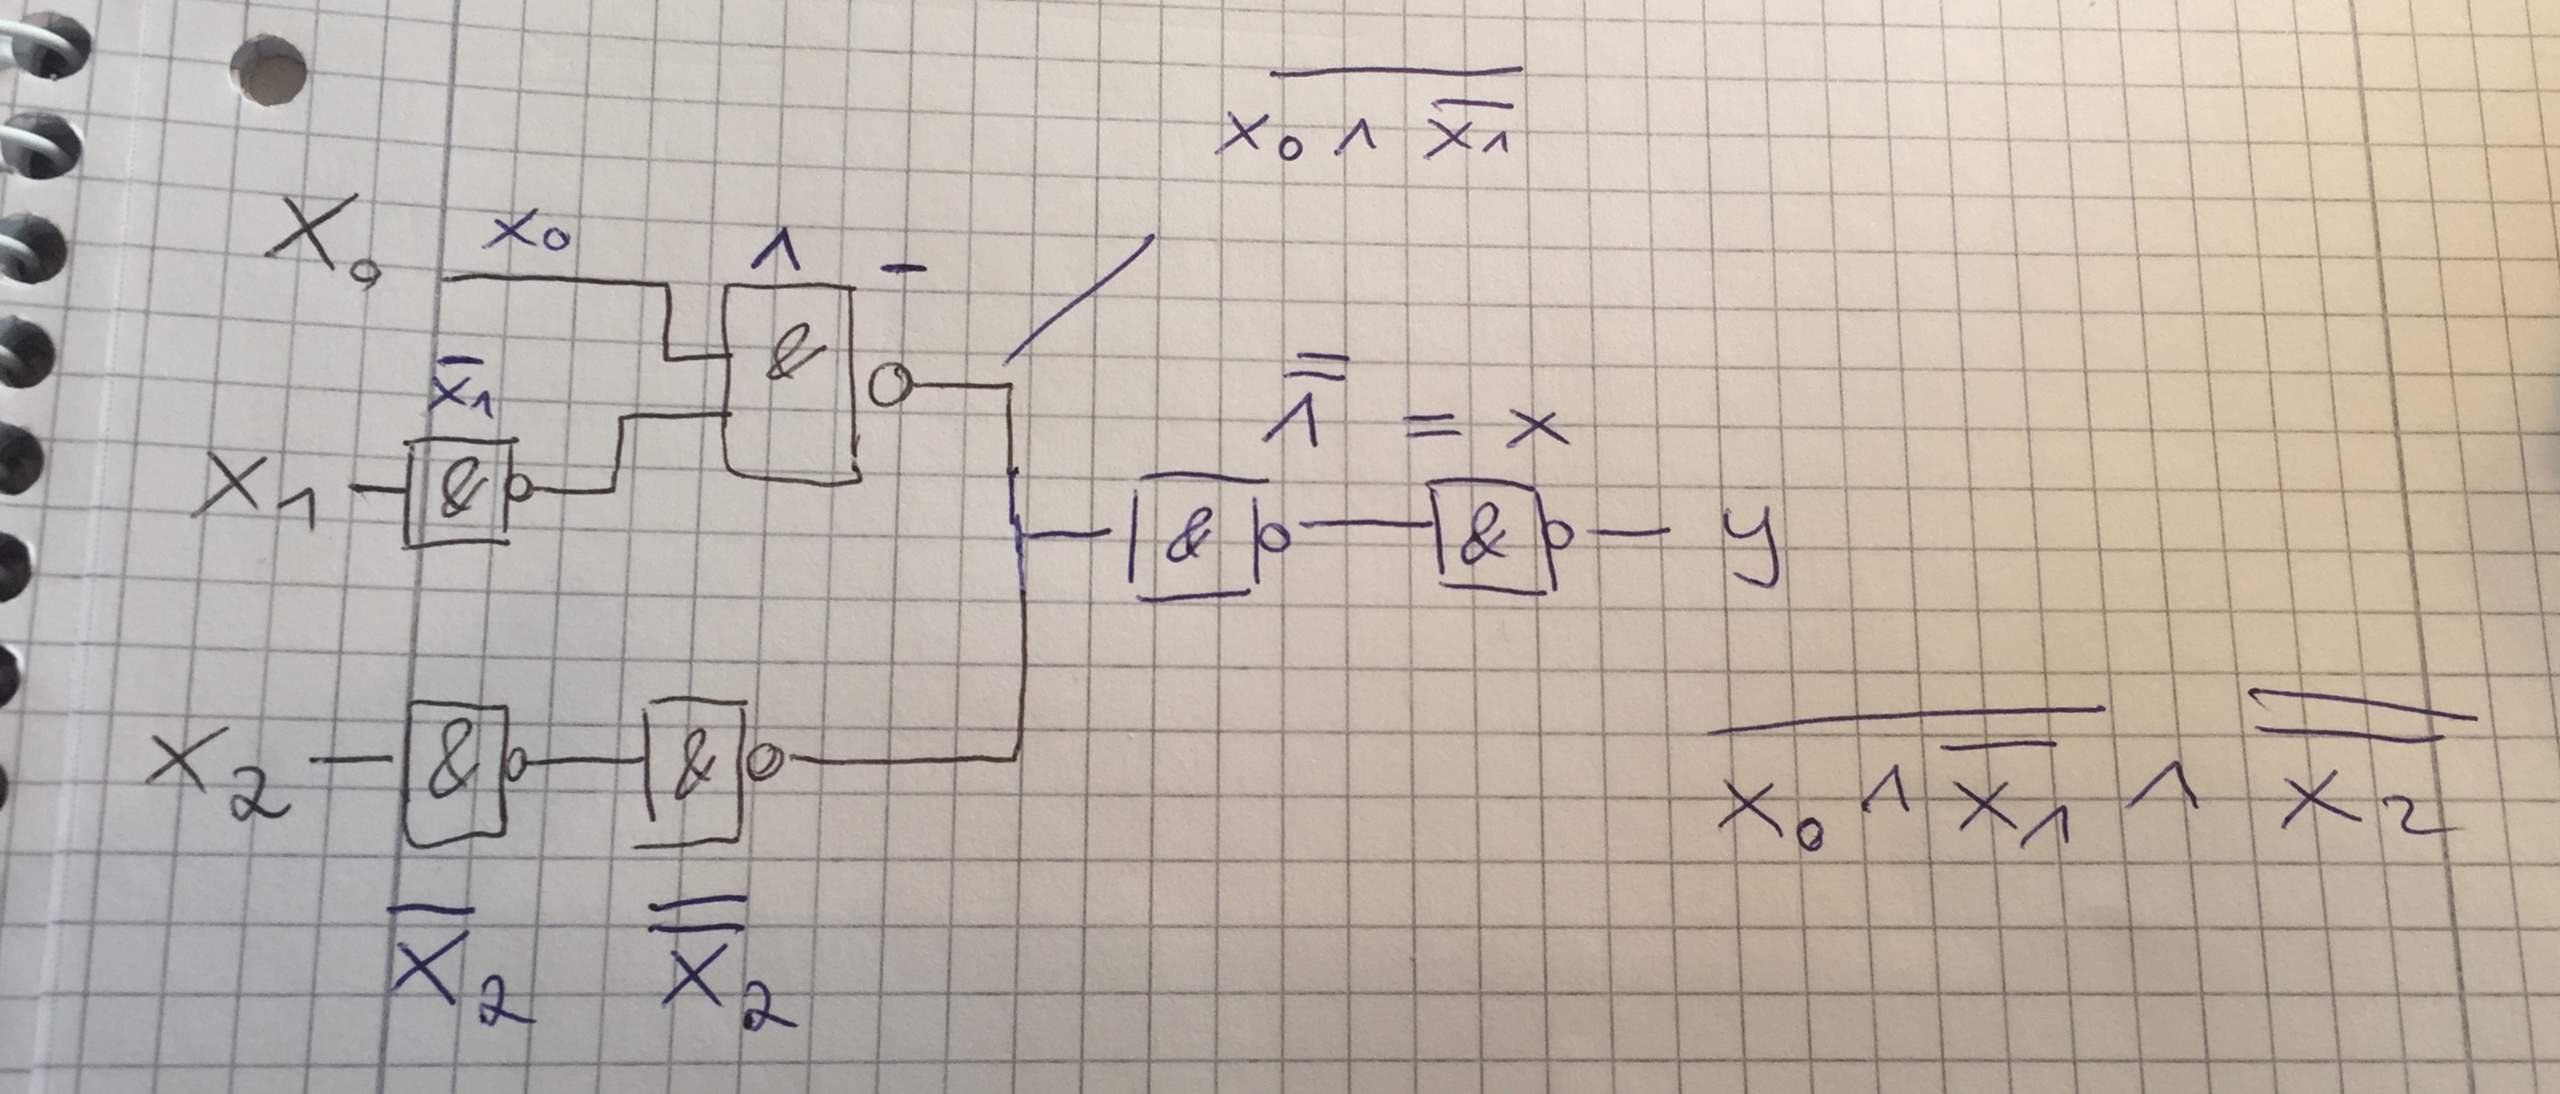 x̅₀̅ ̅∧̅ ̅x̅₁̅
X₀ x₀ ∧ –
&
x̅₁
X₁ & ∧̿ = x
& & y
X₂ & & x̅₀̅ ̅∧̅ ̅x̅₁̅ ∧ x̿₂
x̅₂ x̿₂